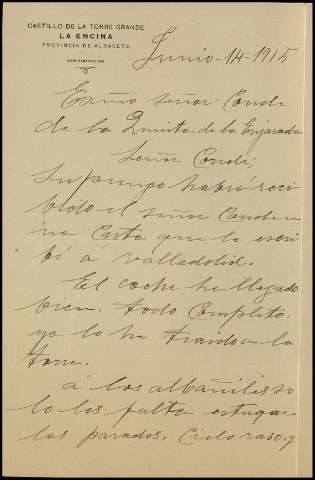 CASTILLO DE LA TORRE GRANDE
LA ENCINA
PROVINCIA DE ALBACETE
ADMINISTRACIÓN
Junio-14-1915
Exmo señor: Conde
de la Quinta de la Enjarada
Señor Conde;
Supungo habrá reci
bido el señor Conde u
na Carta que le escri
bí á Valladolid.
El coche ha llegado
bien. todo Completo.
ya lo he traido a la
torre.
á los albañiles so
lo les falta estugar
las parades. Cielo raso, y